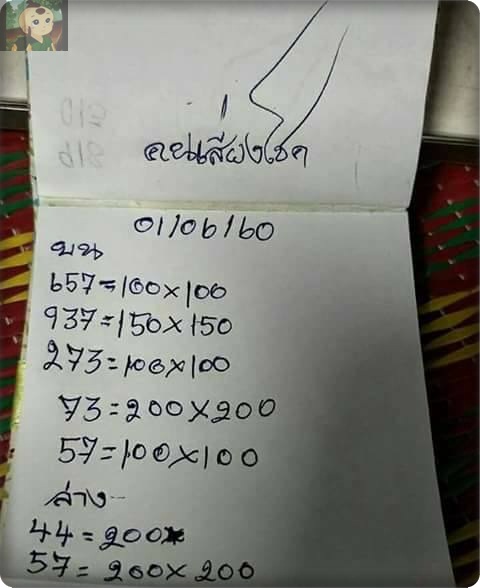 คนเสี่ยงโชค
01/06/60
บน
657=100×100
937=150×150
273=100×100
73=200×200
57=100×100
ล่าง--
44=200×
57=200×200